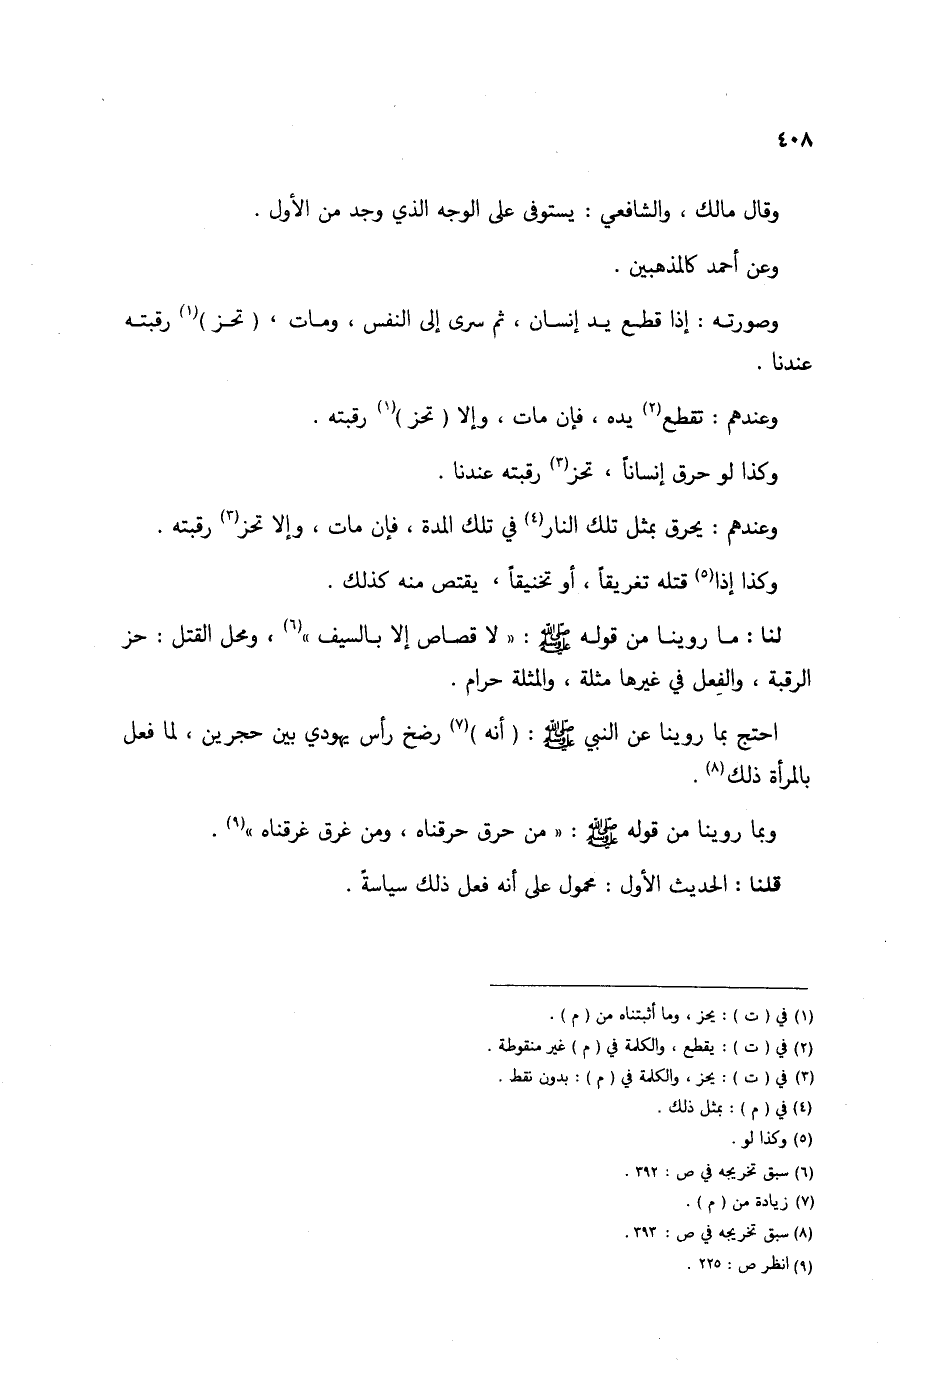 ٤٠٨
وقال مالك ، والشافعي : يستوفى على الوجه الذي وجد من الأول .
وعن أحمد كالمذهبين .
وصورتـه : إذا قطـع يـد إنسـان ، ثم سرى إلى النفس ، ومـات ، ( تحـز )(١) رقبتـه
عندنا .
وعندهم : تقطع(٢) يده ، فإن مات ، وإلا ( تحز )(١) رقبته .
وكذا لو حرق إنساناً ، تحز(٣) رقبته عندنا .
وعندهم : يحرق بمثل تلك النار(٤) في تلك المدة ، فإن مات ، وإلا تحز(٣) رقبته .
وكذا إذا(٥) قتله تغريقاً ، أو تخنيقاً ، يقتص منه كذلك .
لنا : مـا روينـا من قولـه ﷺ : « لا قصـاص إلا بـالسيف »(٦) ، ومحل القتل : حز
الرقبة ، والفعل في غيرها مثلة ، والمثلة حرام .
احتج بما روينا عن النبي ﷺ : ( أنه )(٧) رضخ رأس يهودي بين حجرين ، لما فعل
بالمرأة ذلك(٨) .
وبما روينا من قوله ﷺ : « من حرق حرقناه ، ومن غرق غرقناه »(٩) .
قلنا : الحديث الأول : محمول على أنه فعل ذلك سياسةً .
(١) في ( ت ) : يحز ، وما أثبتناه من ( م ) .
(٢) في ( ت ) : يقطع ، والكلمة في ( م ) غير منقوطة .
(٣) في ( ت ) : يحز ، والكلمة في ( م ) : بدون نقط .
(٤) في ( م ) : بمثل ذلك .
(٥) وكذا لو .
(٦) سبق تخريجه في ص : ٣٩٢ .
(٧) زيادة من ( م ) .
(٨) سبق تخريجه في ص : ٣٩٣ .
(٩) انظر ص : ٢٢٥ .